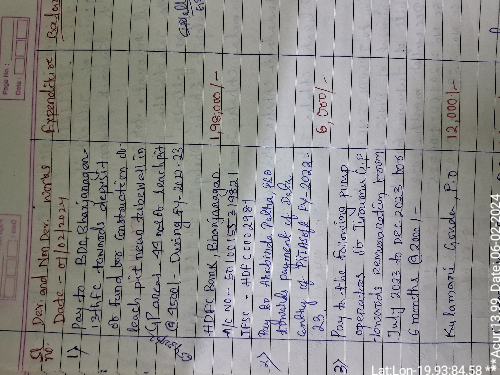 Page No.:
Date
Sl. no.
Dev. and Non Dev. Works
Expenditure
Date:- 07/02/2024
1) Pay to BDO, Bhanjanagar
15th FC towards deposit
of Fund for Construction of
leach pit near tube well in
GP area. 49 no of leach pit
@ 4000/- During FY-2022-23
HDFC Bank, Bhanjanagar 1,98,000/-
A/C NO:- 50100155319821
IFSC:- HDFC0002981
2) Pay to
towards payment of Data
Entry of PRIASoft FY-2022-
23 6,000/-
3) Pay to the following pump
operators of GP
towards remuneration from
July 2023 to Dec 2023 for
6 months @ 2000/-
Kalamani Gouda, P.O 12,000/-
Lat Lon-19.93:84.58 **Acur:13.99,Date-06-02-2024